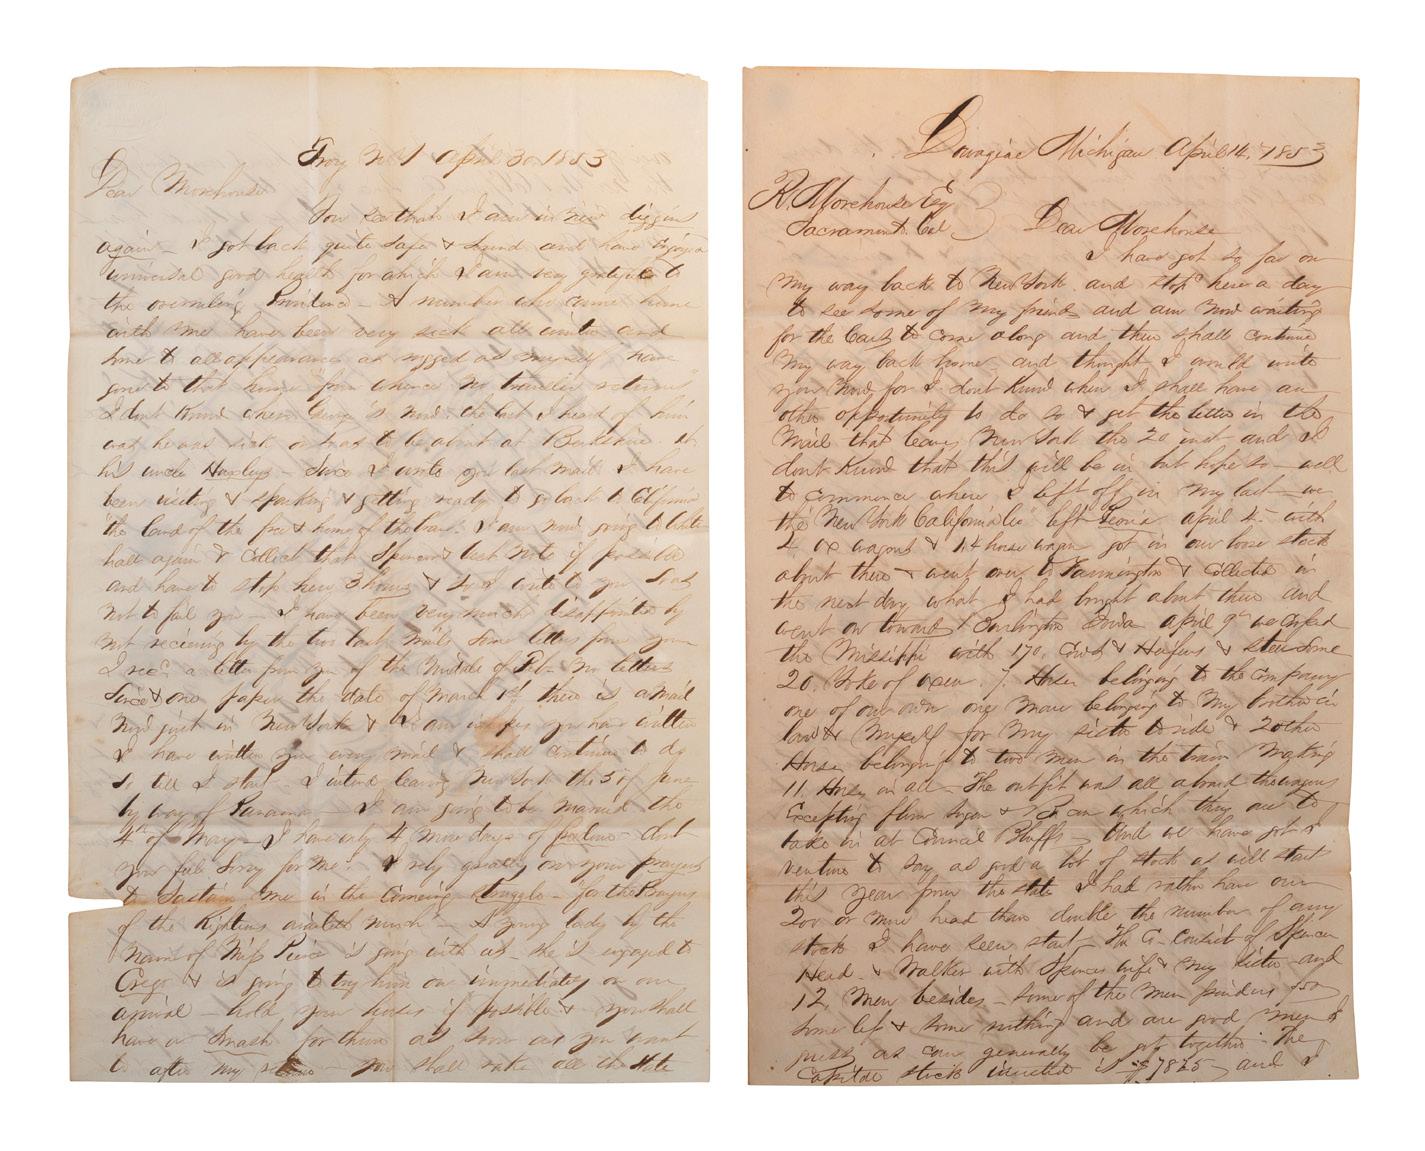 Troy N.Y April 30 1853
Dear Morehouse
You see that I am in new diggins
again - I got back quite safe & sound and have enjoyed
universal good health for which I am very grateful to
the overruling Providence - A number who came home
with me have been very sick all winter and
some to all appearance as rugged as myself have
gone to that home "from whence no traveller returns"
I dont know where George is now. the last I heard of him
was he was sick or was to be about at Berkshire. at
his uncle - Since I wrote you last mail I have
been visiting & sparking & getting ready to go back to California
"the Land of the free & home of the brave". I am now going to White-
hall again & collect that Spencer & last note if possible
and have to stop here 3 hours & so I write to you so as
not to fail you - I have been very much disappointed by
not recieving by the two last mails some letters from you
I recd a letter from you of the middle of Feb - no letters
Since & one paper the date of March 1st there is a mail
now just in New York & I am in hopes you have written
I have written you every mail & shall continue to do
so till I start I intend leaving New York the 5 of June
by way of Panama - I am going to be married the
4th of May - I have only 4 more days of - dont
you feel sorry for me? I rely greatly on your prayers
to sustain me in the coming struggle - "for the Prayers
of the Righteous availeth much" - A young lady by the
name of Miss Peirce is going with us - she is engaged to
Crego & is going to try him on immediately on our
arrival - hold your horses if possible & you shall
have a smash for them as soon as you want
to after my return - you shall rake all the State
Dowagiac Michigan April 14, 1853
R. Morehouse Esq
Sacramento Cal Dear Morehouse
I have got so far on
my way back to New York and stopd here a day
to see some of my friends and am now waiting
for the Cars to come along and then shall continue
my way back home - and thought I would write
you now for I dont know when I shall have an
other opportunity to do so & get the letter in the
Mail that leaves New York the 20 inst - and I
dont know that this will be in but hope so - well
to commence where I left off in my last - we
the "New York California Co" left Peoria April 4 - with
4 ox wagons & 1, 4 horse wagon got in our loose stock
about there & went over to Farmington & Collected in
the next day what I had bought about there and
went on towards Burlington Iowa April 9th we crossed
the Missisippi with 170, Cows & Heifers & steers some
20 Yoke of oxen 7 Horses belonging to the Company
one of our own one Mare belonging to My brother in
law & Myself for My sister to ride & 2 other
Horses belonging to two men in the train making
11 Horses in all - The outfit was all aboard the wagons
Excepting flour sugar & Bacon which they are to
take in at Council Bluffs - And we have got I
venture to say as good a lot of stock as will start
this year from the state I had rather have our
200 or more head than double the number of any
stock I have seen start - The Co - Consist of Spencer
Head & Walker with Spencers wife & My sister and
12, Men besides - some of the men furnishes $50
some less & some nothing and are good men I
guess as can generally be got together - The
Capital stock invested is $7825 - and I